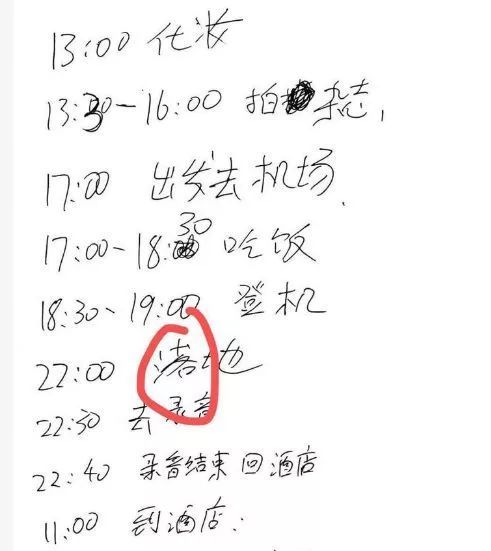 13:00 化妆
13:30-16:00 拍杂志,
17:00 出发去机场.
17:00-18:30 吃饭
18:30-19:00 登机
22:00 落地
22:30 去录音
22:40 录音结束回酒店
11:00 到酒店.